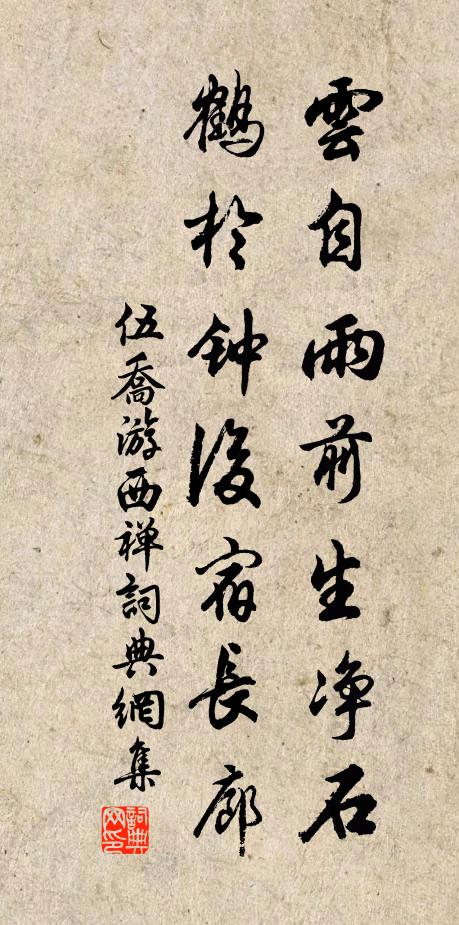 雲自雨前生净石
鶴於钟後宿長廊
伍喬游西禅詞典網集
詞典网印